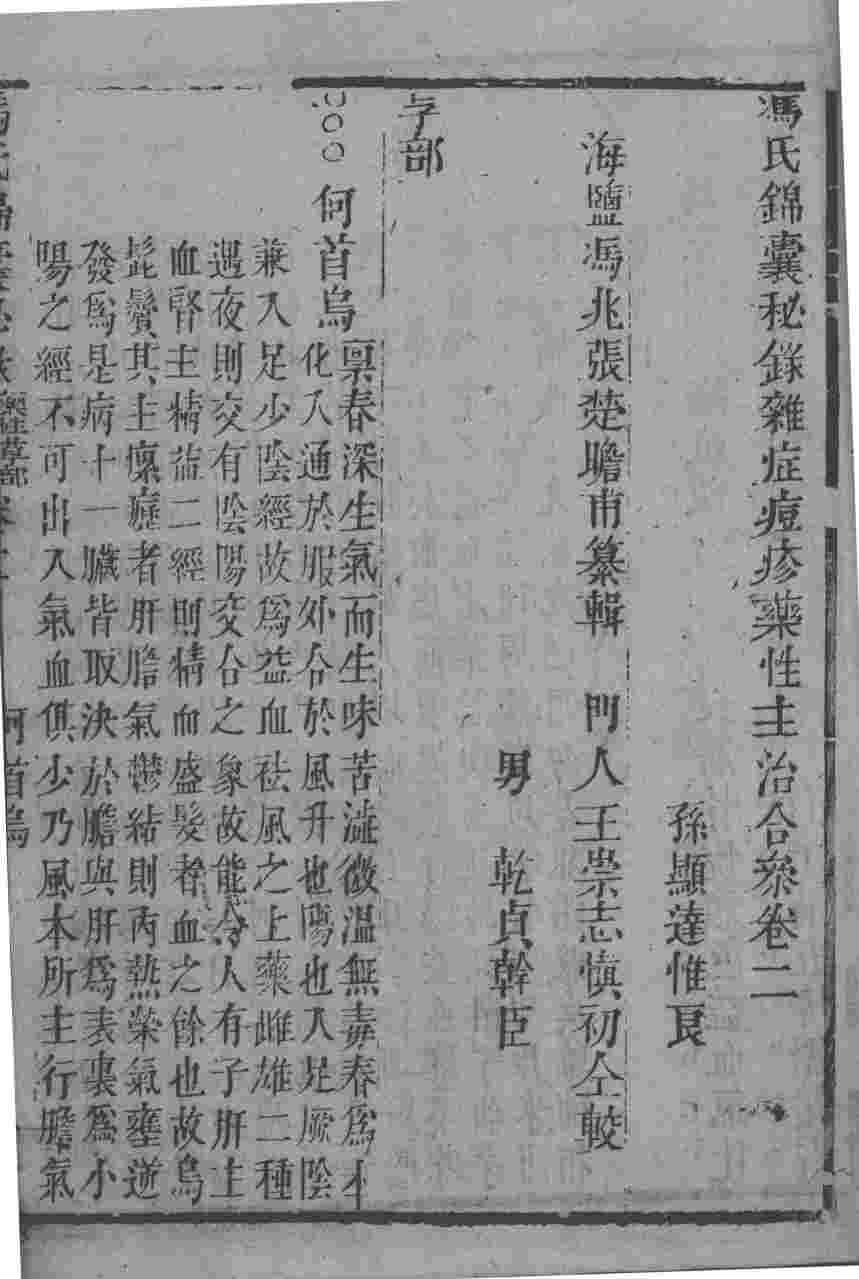 馮氏錦囊秘錄雜症痘疹藥性主治合叅卷二
孫顯達惟良
海鹽馮兆張楚瞻甫纂輯　門人王崇志慎初仝較
男　乾貞幹臣
部
何首烏　禀春深生氣而生味苦澁微温無毒春爲木
化入通於肝外合於風升也陽也入足厥陰
兼入足少陰經故爲益血祛風之上藥雌雄二種
遇夜則交有陰陽交合之象故能令人有子肝主
血腎主精益二經則精血盛髮者血之餘也故烏
髭鬢其主瘰癧者肝膽氣鬱結則內熱榮氣壅逆
發爲是病十一臟皆取決於膽與肝爲表裏爲小
陽之經不可出入氣血俱少乃風本所主行膽氣
何首烏